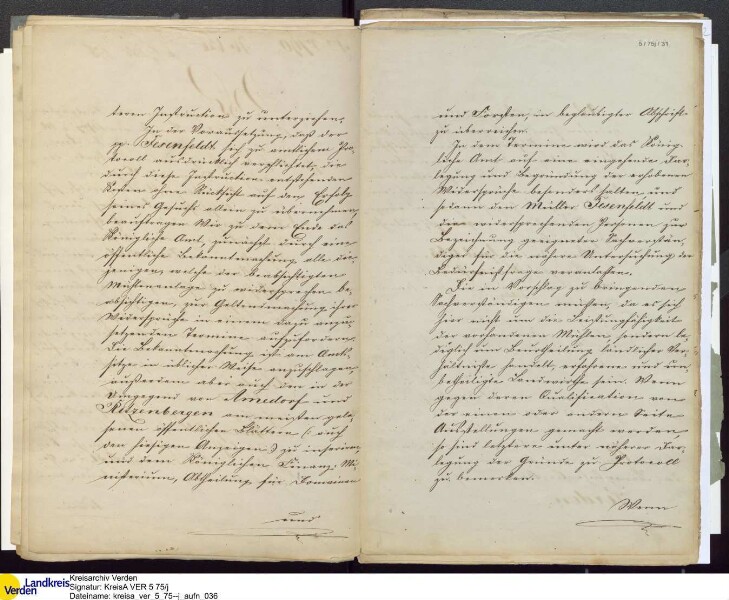 teren Instruction zu unterziehen.
In der Voraussetzung, daß der
pp. Fesenfeldt sich zu amtlichem Pro-
tocoll ausdrücklich verpflichtet, die
durch diese Instruction entstehenden
Kosten ohne Rücksicht auf den Erfolg
seines Gesuchs allein zu übernehmen,
beauftragen Wir zu dem Ende das
Königliche Amt, zunächst durch eine
öffentliche Bekanntmachung alle die-
jenigen, welche der beabsichtigten
Mühlenanlage zu widersprechen be-
absichtigen, zur Geltendmachung ihrer
Widersprüche in einem dazu anzu-
setzenden Termine aufzufordern.
Die Bekanntmachung ist am Amts-
sitze in üblicher Weise anzuschlagen,
außerdem aber auch den in der
Umgegend von Amedorf und
Ritzenbergen am meisten gele-
senen öffentlichen Blättern (: auch
den hiesigen Anzeigen :) zu inseriren,
und dem Königlichen Finanz-Mi-
nisterium, Abtheilung für Domainen
und
5/75j/31
und Forsten, in beglaubigter Abschrift
zu überreichen.
In dem Termine wird das König-
liche Amt auf eine eingehende Dar-
legung und Begründung der erhobenen
Widersprüche besonders halten und
sodann den Müller Fesenfeldt und
die widersprechenden Personen zur
Bezeichnung geeigneter Sachverstän-
diger für die nähere Untersuchung der
Bedürfnißfrage veranlassen.
Die in Vorschlag zu bringenden
Sachverständigen müssen, da es sich
hier nicht um die Leistungsfähigkeit
der vorhandenen Mühlen, sondern le-
diglich um Beurtheilung ländlicher Ver-
hältnisse handelt, erfahrene und un-
betheiligte Landwirthe sein. Wenn
gegen deren Qualification von
der einen oder andern Seite
Ausstellungen gemacht werden,
so sind letztere unter näherer Dar-
legung der Gründe zu Protocoll
zu bemerken.
Wenn
Landkreis
Verden
Kreisarchiv Verden
Signatur: KreisA VER 5 75/j
Dateiname: kreisa_ver_5_75--j_aufn_036